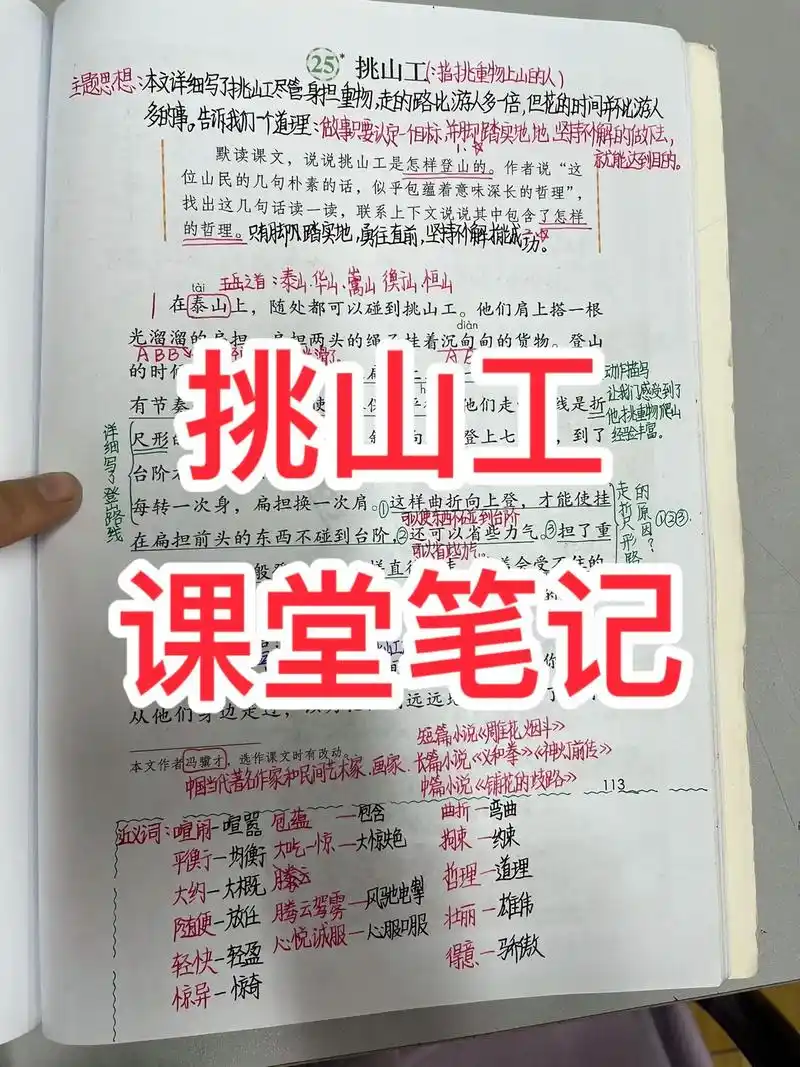 25* 挑山工(:指挑重物上山的人)
主题思想:本文详细写了挑山工尽管身担重物,走的路比游人多一倍,但花的时间并不比游人
多的事。告诉我们一个道理:做事只要认定一个目标,并脚踏实地地,坚持不懈的做下去,
就能达到目的。
默读课文,说说挑山工是怎样登山的。作者说“这
位山民的几句朴素的话,似乎包蕴着意味深长的哲理”,
找出这几句话读一读,联系上下文说说其中包含了怎样
的哲理。只有脚踏实地,勇往直前,坚持不懈才能成功。
五岳之首:泰山、华山、嵩山 衡山 恒山
tài
1 在泰山上,随处都可以碰到挑山工。他们肩上搭一根
diàn
光溜溜的扁担,扁担两头的绳子挂着沉甸甸的货物。登山
ABB
的时
动作描写
让我们感受到了
他挑重物爬山
经验丰富。
有节奏
们走
线是折
尺形的
登上七
,到了
详细写了登山路线
台阶
每转一次身,扁担换一次肩。①这样曲折向上登,才能使挂
可以使东西不碰到台阶
在扁担前头的东西不碰到台阶,②还可以省些力气。③担了重
可以省些力气。
走的折尺形路
原因?①②③.
挑山工
课堂笔记
从他们身边走过,
远远
本文作者冯骥才,选作课文时有改动。
中国当代著名作家和民间艺术家、画家.
短篇小说《雕花烟斗》
长篇小说《义和拳》《神灯前传》
中篇小说《铺花的歧路》
113
近义词:喧闹—喧嚣 包蕴—包含 曲折—弯曲
平衡—均衡 大吃一惊—大惊失色 拘束—约束
大约—大概 腾云 哲理—道理
随便—放任 腾云驾雾—风驰电掣 壮丽—雄伟
轻快—轻盈 心悦诚服—心服口服 得意—骄傲
惊异—惊奇